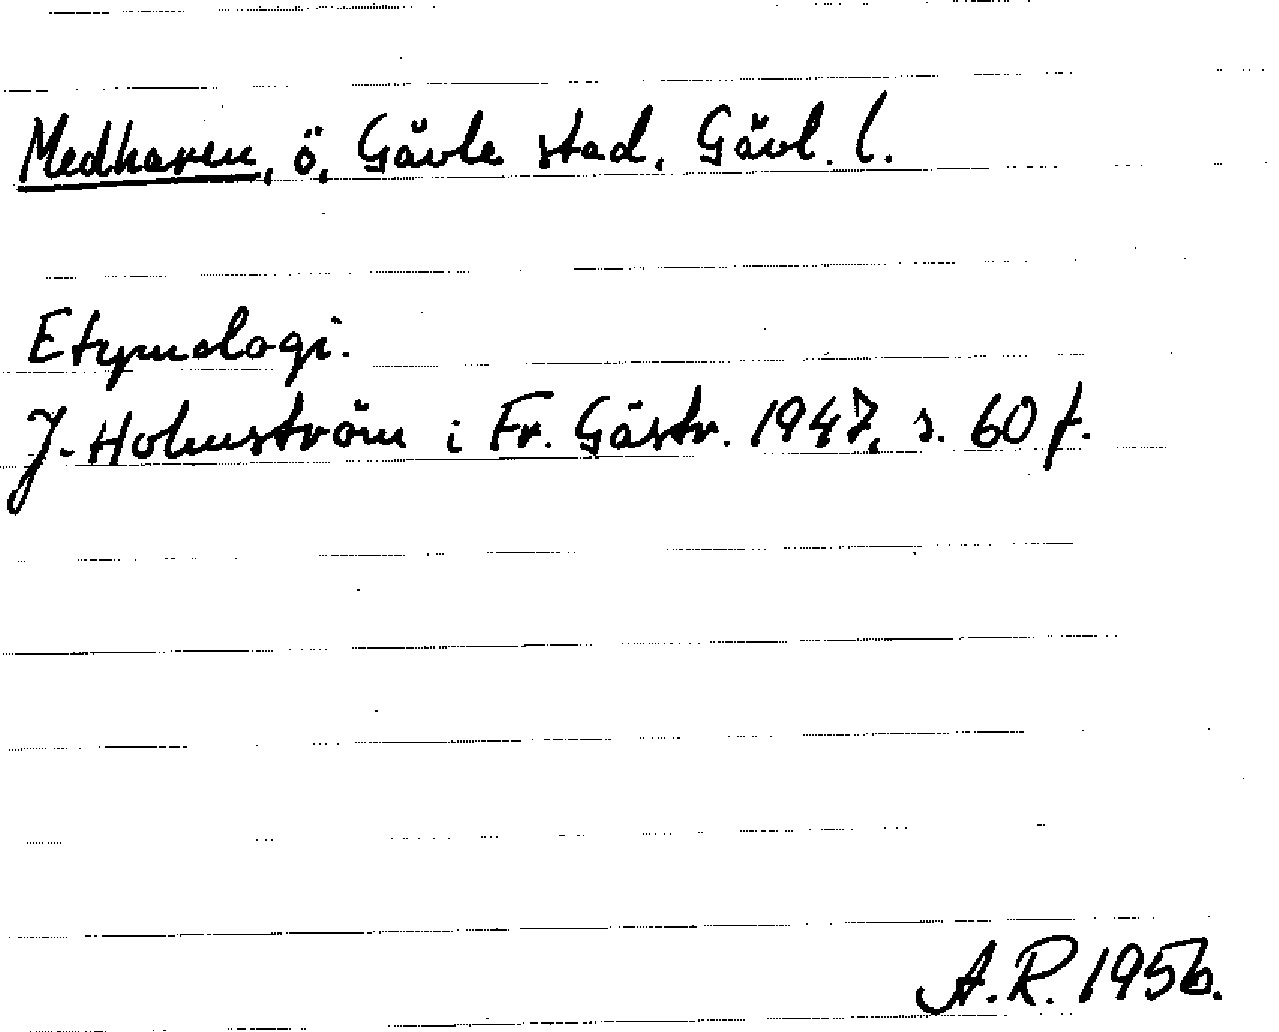 Medharen, ö, Gävle stad, Gävl. l.
Etymologi.
J. Holmström i Fr. Gästr. 1947, s. 60 f.
A. R. 1956.